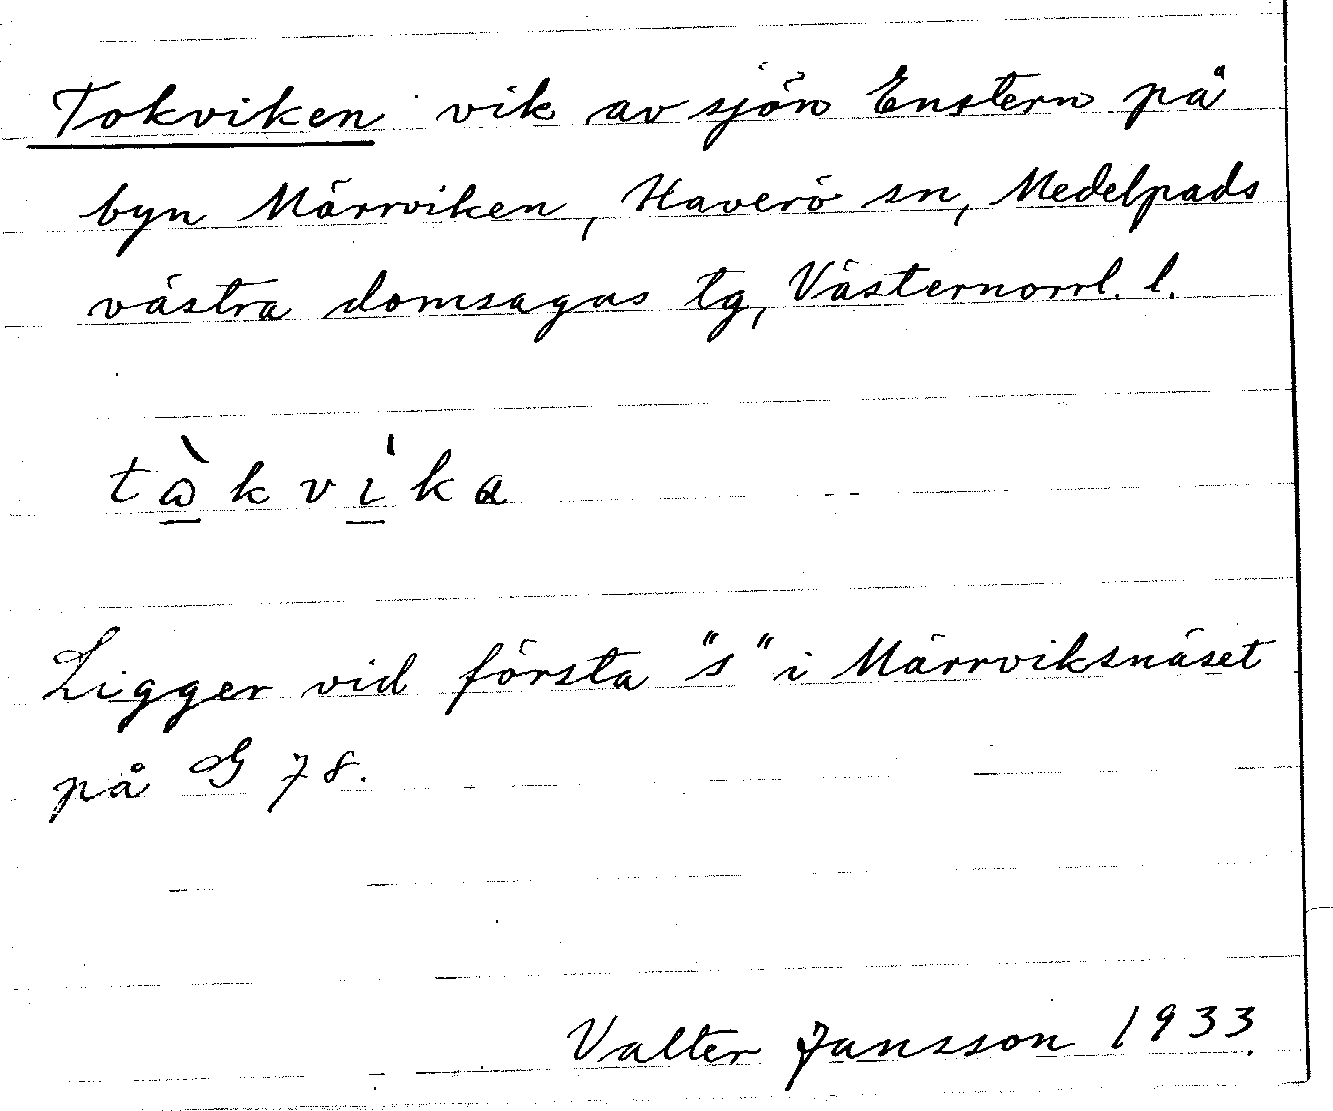 Tokviken vik av sjön Enstern på
byn Märrviken, Haverö sn, Medelpads
västra domsagas tg, Västernorrl. l.
tὼkvi̍ka
Ligger vid första "s" i Märrviksnäset
på G 78.
Valter Jansson 1933.